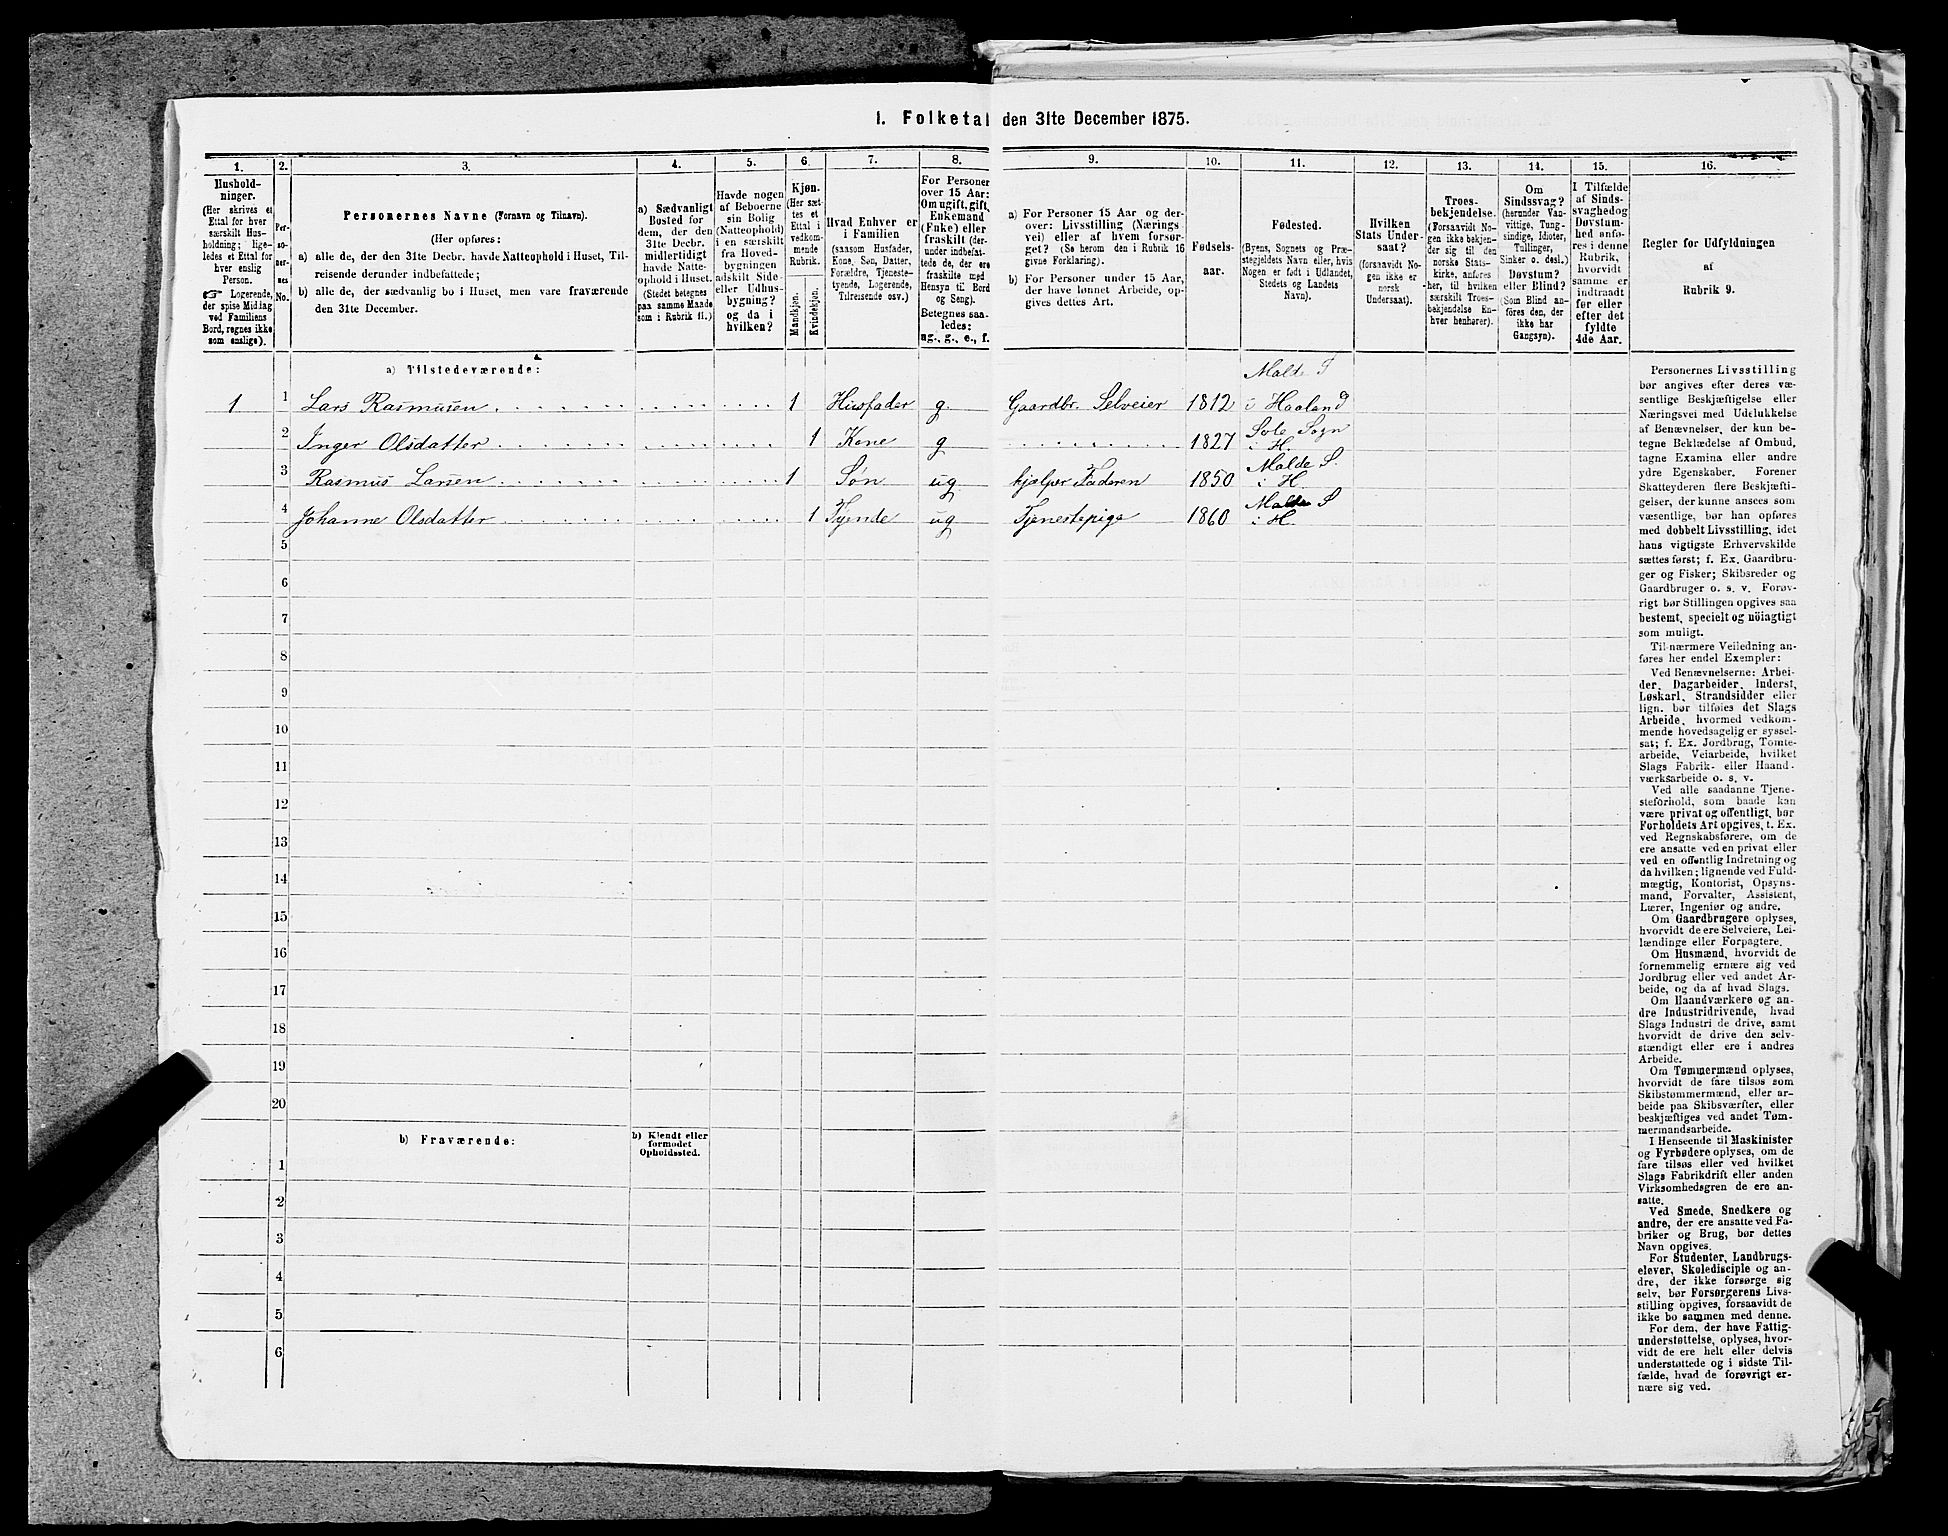 1. Folketal den 31te December 1875.
1. 2. 3. 4. 5. 6. 7. 8. 9. 10. 11. 12. 13. 14. 15. 16.
Hushold-
ninger.
(Her skrives et
Ettal for hver
særskilt Hus-
holdning; lige-
ledes et Ettal
for hver enslig
Person.
☞ Logerende,
der spise Middag
ved Familiens
Bord, regnes ikke
som enslige).
Per-
so-
ner-
nes
No.
Personernes Navne (Fornavn og Tilnavn).
(Her opføres:
a) alle de, der den 31te Decbr. havde Natteophold i Huset, Til-
reisende derunder indbefattede;
b) alle de, der sædvanlig bo i Huset, men vare fraværende
den 31te December.
a) Sædvanligt
Bosted for
dem, der den
31te Decbr.
midlertidigt
havde Natte-
ophold i Huset.
(Stedet betegnes
paa samme Maade
som i Rubrik 11.)
Havde nogen
af Beboerne
sin Bolig
(Natteophold)
i en særskilt
fra Hoved-
bygningen
adskilt Side-
eller Udhus-
bygning?
og da i
hvilken?
Kjøn.
(Her sæt-
tes et
Ettal i
vedkom-
mende
Rubrik.
Mandkjøn.
Kvindekjøn.
Hvad Enhver er
i Familien
(saasom Husfader,
Kone, Søn, Datter,
Forældre, Tjeneste-
tyende, Logerende,
Tilreisende osv.)
For Personer
over 15 Aar:
Om ugift, gift,
Enkemand
(Enke) eller
fraskilt (der-
under indbefat-
tede de, der ere
fraskilte med
Hensyn til Bord
og Seng).
Betegnes saa-
ledes:
ug., g., e., f.
a) For Personer 15 Aar og der-
over: Livsstilling (Nærings
vei) eller af hvem forsør-
get? (Se herom den i Rubrik 16
givne Forklaring).
b) For Personer under 15 Aar,
der have lønnet Arbeide, op-
gives dettes Art.
Fødsels-
aar.
Fødested.
(Byens, Sognets og Præ-
stegjeldets Navn eller, hvis
Nogen er født i Udlandet,
Stedets og Landets
Navn).
Hvilken
Stats Under-
saat?
(forsaavidt No-
gen ikke er
norsk
Undersaat).
Troes-
bekjendelse.
(Forsaavidt No-
gen ikke bekjen-
der sig til den
norske Stats-
kirke, anføres
her, til hvilken
særskilt Troes-
bekjendelse En-
hver henhører).
Om
Sindssvag?
(herunder Van-
vittige, Tung-
sindige, Idioter,
Tullinger,
Sinker o. desl.)
Døvstum?
eller Blind?
(Som Blind an-
føres den, der
ikke har
Gangsyn).
I Tilfælde
af Sinds-
svaghed og
Døvstum-
hed anfø-
res i denne
Rubrik,
hvorvidt
samme er
indtraadt
før eller
efter det
fyldte
4de Aar.
Regler for Udfyldningen
af
Rubrik 9.
a) Tilstedeværende:
Malde S
1 1 Lars Rasmusen 1 Husfader g. Gaardbr. Selveier 1812 i Haaland
2 Inger Olsdatter 1 Kone g 1827 Sole Sogn
i H.
3 Rasmus Larsen 1 Søn ug hjelper Faderen 1850 Malde S.
i H
4 Johanne Olsdatter 1 Tyende ug Tjenestepige 1860 Malde S
i H.
5
6
7
8
9
10
11
12
13
14
15
16
17
18
19
20
b) Fraværende:
b) Kjendt eller
formodet
Opholdssted.
1
2
3
4
5
6
Personernes Livsstilling
bør angives efter deres væ-
sentlige Beskjæftigelse eller
Næringsvei med Udelukkelse
af Benævnelser, der kun be-
tegne Beklædelse af Ombud,
tagne Examina eller andre
ydre Egenskaber. Forener
Skatteyderen flere Beskjæfti-
gelser, der kunne ansees som
væsentlige, bør han opføres
med dobbelt Livsstilling, idet
hans vigtigste Erhvervskilde
sættes først; f. Ex. Gaardbru-
ger og Fisker; Skibsreder og
Gaardbruger o. s. v. Forøv-
rigt bør Stillingen opgives saa
bestemt, specielt og nöiagtigt
som muligt.
Til nærmere Veiledning an-
føres her endel Exempler:
Ved Benævnelserne: Arbei-
der, Dagarbeider, Inderst,
Løskarl, Strandsidder eller
lign. bør tilføies det Slags
Arbeide, hvormed vedkom-
mende hovedsagelig er syssel-
sat; f. Ex. Jordbrug, Tomte-
arbeide, Veiarbeide, hvilket
Slags Fabrik- eller Haand-
værksarbeide o. s. v.
Ved alle saadanne Tjene-
steforhold, som baade kan
være privat og offentligt, bør
Forholdets Art opgives, t. Ex.
ved Regnskabsførere, om de
ere ansatte ved en privat eller
ved en offentlig Indretning og
da hvilken; lignende ved Fuld-
mægtig, Kontorist, Opsyns-
mand, Forvalter, Assistent,
Lærer, Ingeniør og andre.
Om Gaardbrugere oplyses,
hvorvidt de ere Selveiere, Lei-
lændinge eller Forpagtere.
Om Husmænd, hvorvidt de
fornemmelig ernære sig ved
Jordbrug eller ved andet Ar-
beide, og da af hvad Slags.
Om Haandværkere og an-
dre Industridrivende, hvad
Slags Industri de drive, samt
hvorvidt de drive den selv-
stændigt eller ere i andres
Arbeide.
Om Tømmermænd oplyses,
hvorvidt de fare tilsøs som
Skibstømmermænd, eller ar-
beide paa Skibsværfter, eller
beskjæftiges ved andet Tøm-
mermandsarbeide.
I Henseende til Maskinister
og Fyrbødere oplyses, om de
fare tilsøs eller ved hvilket
Slags Fabrikdrift eller anden
Virksomhedsgren de ere an-
satte.
Ved Smede, Snedkere og
andre, der ere ansatte ved Fa-
briker og Brug, bør dettes
Navn opgives.
For Studenter, Landbrugs-
elever, Skoledisciple og an-
dre, der ikke forsørge sig
selv, bør Forsørgerens Livs-
stilling opgives, forsaavidt de
ikke bo sammen med denne.
For dem, der have Fattig-
understøttelse, oplyses, hvor-
vidt de ere helt eller delvis
understøttede og i sidste Til-
fælde, hvad de forøvrigt er-
nære sig ved.